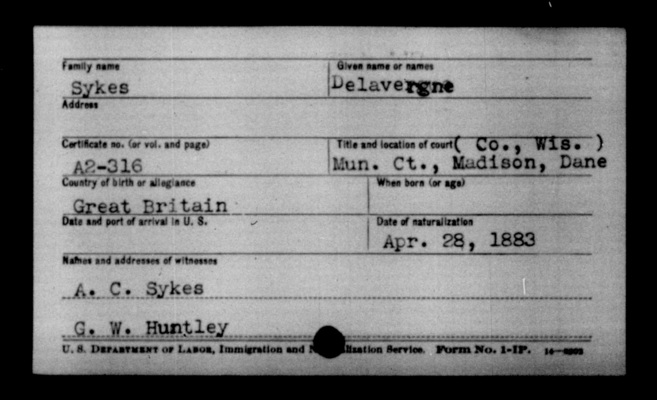 Family name Given name or names
Sykes Delavergne
Address
Certificate no. (or vol. and page) Title and location of court ( Co., Wis. )
A2-316 Mun. Ct., Madison, Dane
Country of birth or allegiance When born (or age)
Great Britain
Date and port of arrival in U. S. Date of naturalization
Apr. 28, 1883
Names and addresses of witnesses
A. C. Sykes
G. W. Huntley
U. S. Department of Labor, Immigration and Service. Form No. 1-IP.